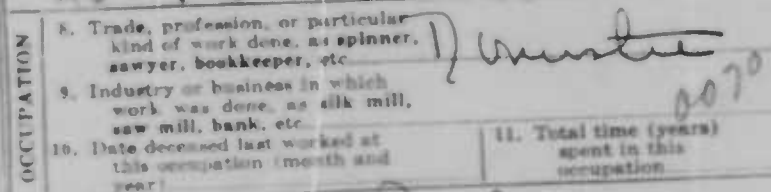 OCCUPATION
8. Trade, profession, or particular
kind of work done, as spinner,
sawyer, bookkeeper, etc
9. Industry or business in which
work was done, as silk mill,
saw mill, bank, etc
0070
10. Date deceased last worked at
this occupation (month and
year)
11. Total time (years)
spent in this
occupation